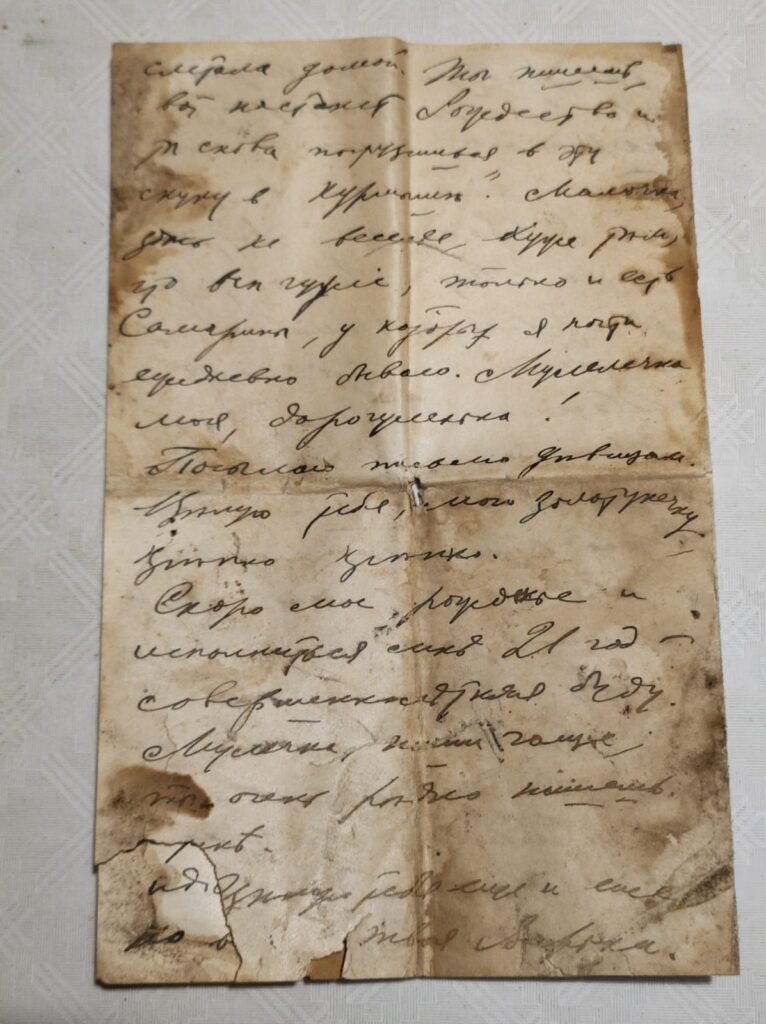 слетала домой. Ты пишешь,
вот настанет Рождество и
ты снова погрузишься в эту
скуку в Курмыше". Мамочка,
здесь не веселее, хуже там,
где все чужие, только и есть
Самарины, у которых я почти
ежедневно бываю. Мулелечка
моя, дорогуленька!
Посылаю письмо девицам.
Целую тебя, мою золотулечку
крепко крепко.
Скоро мое рожденье и
исполнится мне 21 год –
совершеннолетняя буду.
Мулечка, пиши чаще,
ты очень редко пишешь.
Целую тебя еще и еще
твоя